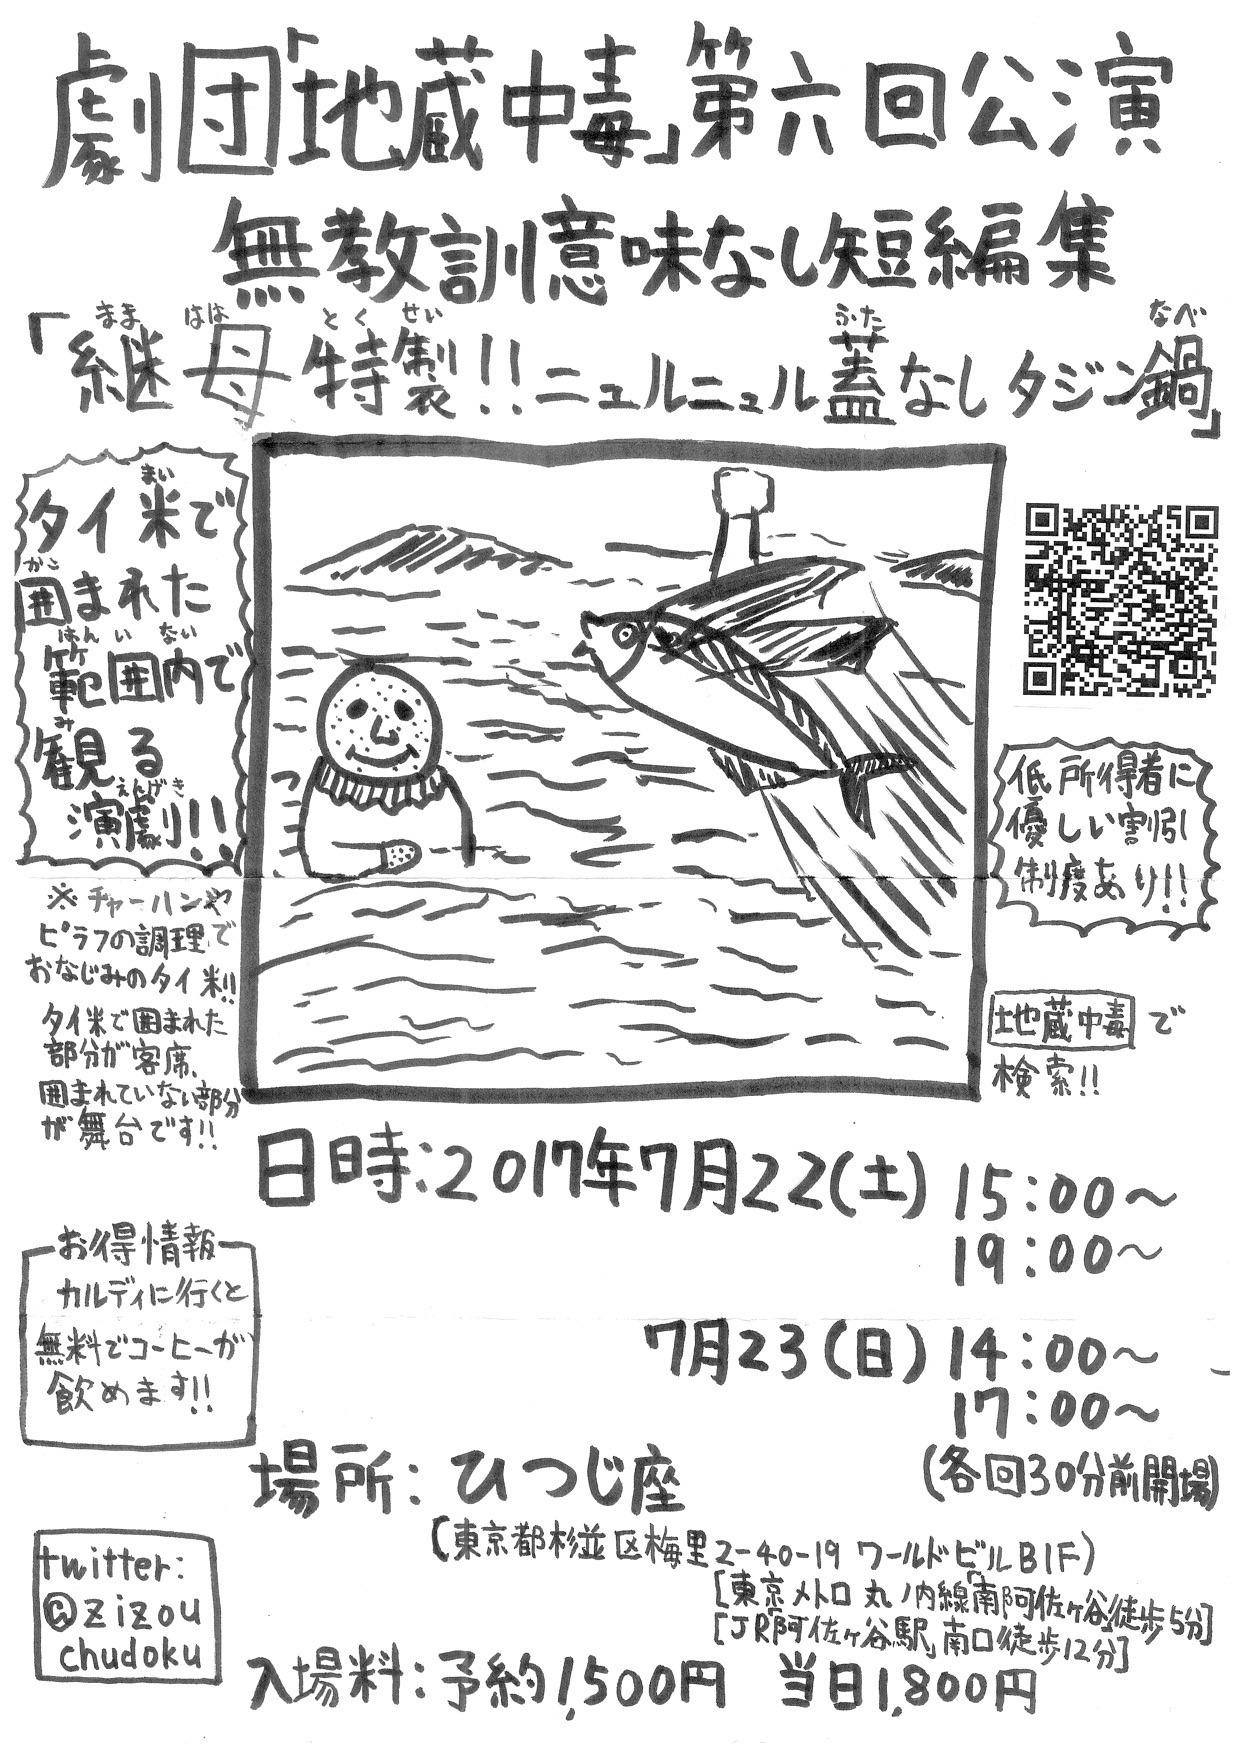 劇団「地蔵中毒」第六回公演
無教訓意味なし短編集
まま はは とく せい ふた なべ
「継母特製!!ニュルニュル蓋なしタジン鍋」
まい
タイ米で
かこ
囲まれた
はん い ない
範囲内で
み
観る
えんげき
演劇!!
※チャーハンや
ピラフの調理で
おなじみのタイ米!!
タイ米で囲まれた
部分が客席、
囲まれていない部分
が舞台です!!
低所得者に
優しい割引
制度あり!!
地蔵中毒で
検索!!
日時:2017年7月22(土) 15:00〜
19:00〜
7月23(日) 14:00〜
17:00〜
(各回30分前開場)
お得情報
カルディに行くと
無料でコーヒーが
飲めます!!
場所: ひつじ座
(東京都杉並区梅里2-40-19 ワールドビルB1F)
[東京メトロ 丸ノ内線「南阿佐ヶ谷」徒歩5分]
[JR「阿佐ヶ谷駅」南口徒歩12分]
twitter:
@zizou
chudoku
入場料:予約1,500円 当日1,800円